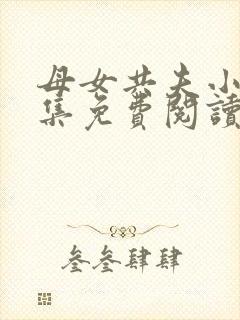 母女共夫小
集免費閱讀
叁叁肆肆